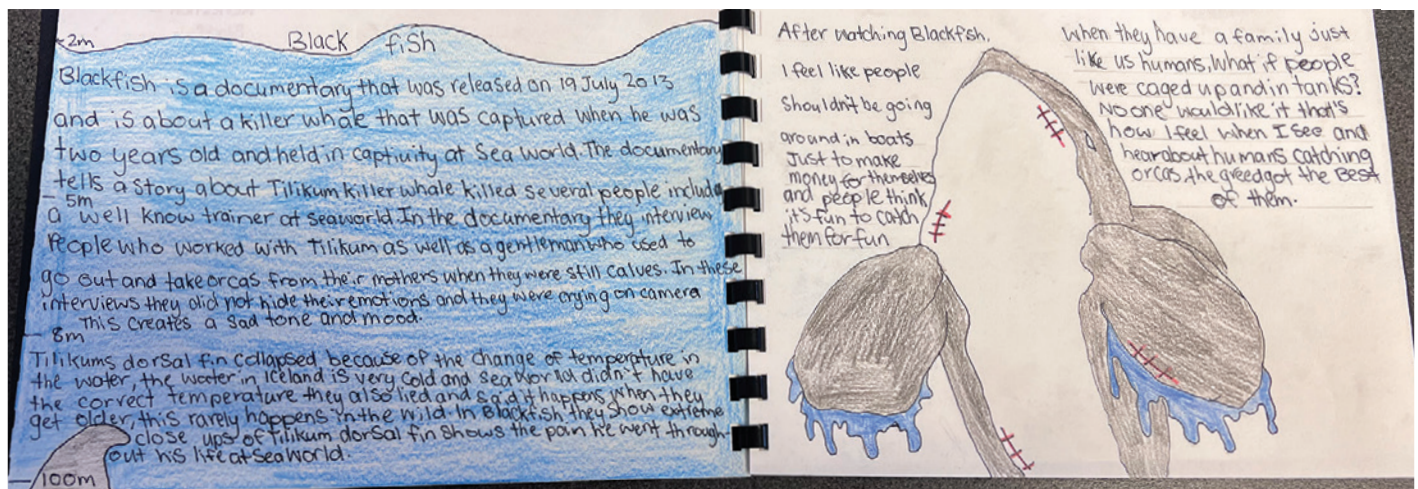 ~2m
Black fish
Blackfish is a documentary that was released on 19 July 2013
and is about a killer whale that was captured when he was
two years old and held in captivity at Sea World. The documentary
tells a story about Tilikum killer whale killed several people include
5m
a well know trainer at seaworld. In the documentary they interview
People who worked with Tilikum as well as a gentleman who used to
go out and take orcas from their mothers when they were still calves. In these
interviews they did not hide their emotions and they were crying on camera
This creates a sad tone and mood.
8m
Tilikums dorsal fin collapsed because of the change of temperature in
the water, the water in Iceland is very cold and sea World didn't have
the correct temperature they also lied and said it happens when they
get older, this rarely happens in the wild. In Blackfish they show extreme
close ups of Tilikum dorsal fin shows the pain he went through-
out his life at Sea World.
100m
After watching Blackfish.
I feel like people
Shouldn't be going
ground in boats
Just to make
money for themselves
and people think
it's fun to catch
them for fun
when they have a family just
like us humans, What if people
were caged up and in tanks?
No one would like it that's
how I feel when I see and
hear about humans catching
orcas, the greed got the Best
of them.